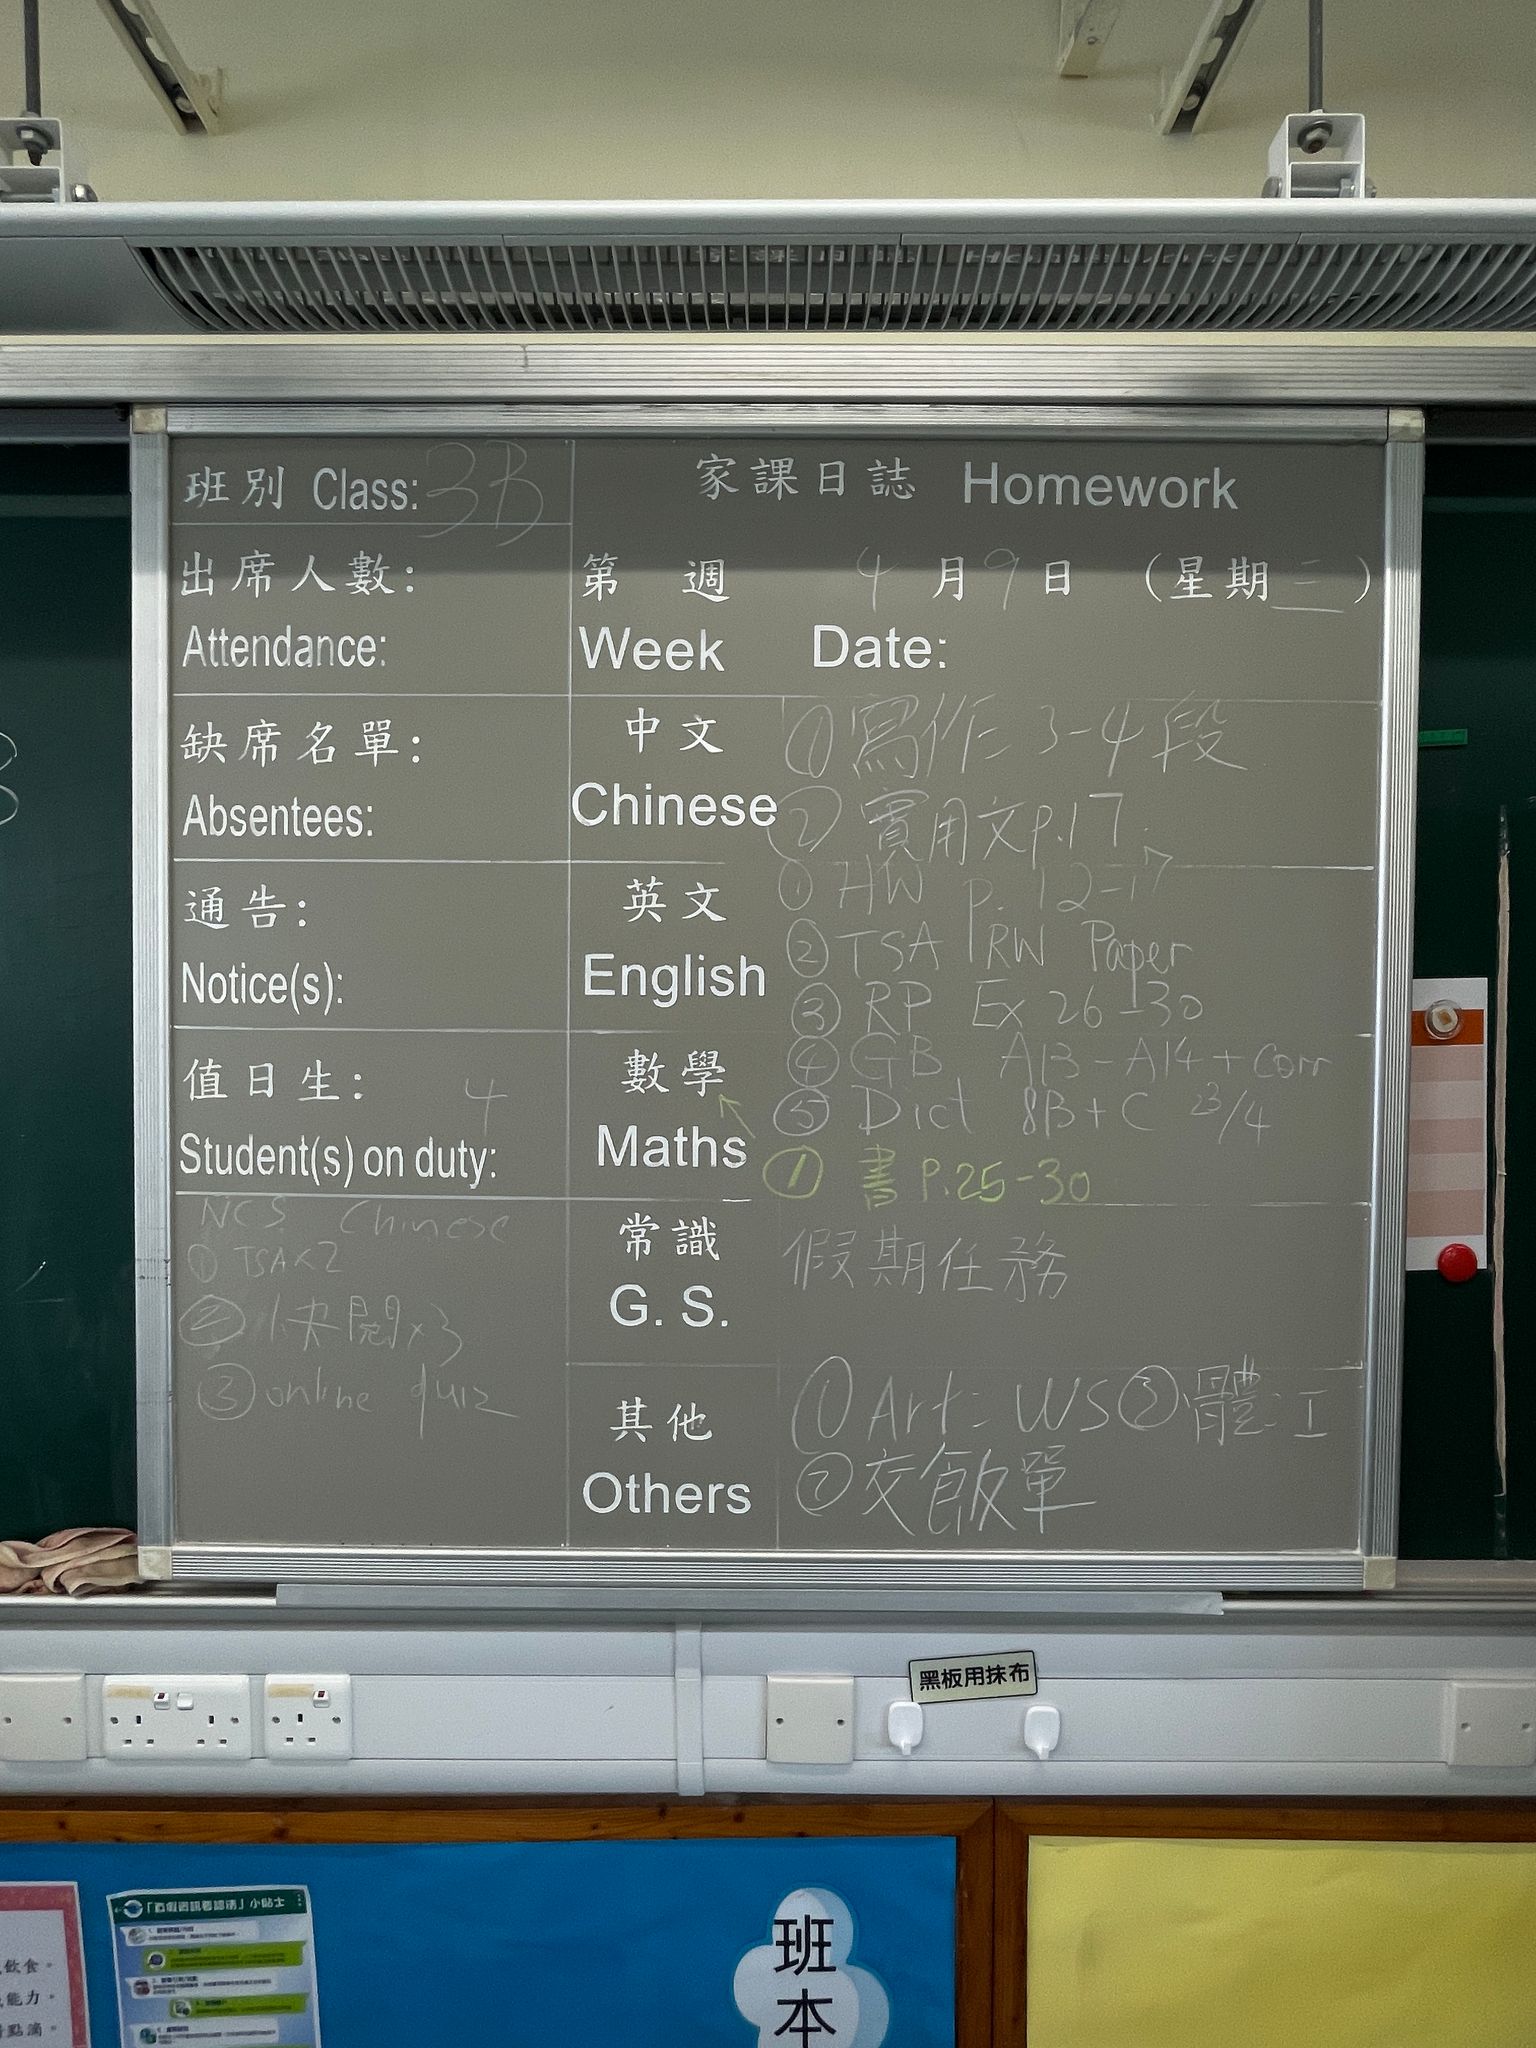 班別 Class: 3B
家課日誌 Homework
出席人數:
Attendance:
第 週 4月9日 (星期三)
Week Date:
缺席名單:
Absentees:
中文
Chinese
① 寫作: 3-4段
② 實用文p.17
通告:
Notice(s):
英文
English
① HW p. 12-17
② TSA RW Paper
③ RP Ex 26-30
④ GB A13-A14 + corr
⑤ Dict 8B+C 23/4
值日生: 4
Student(s) on duty:
數學
Maths
① 書 P.25-30
NCS Chinese
① TSA×2
② 快閱×3
③ online quiz
常識
G. S.
假期任務
其他
Others
① Art: WS ③ 體:
② 交飯單
黑板用抹布
小貼士
飲食。
能力。
點滴。
班
本